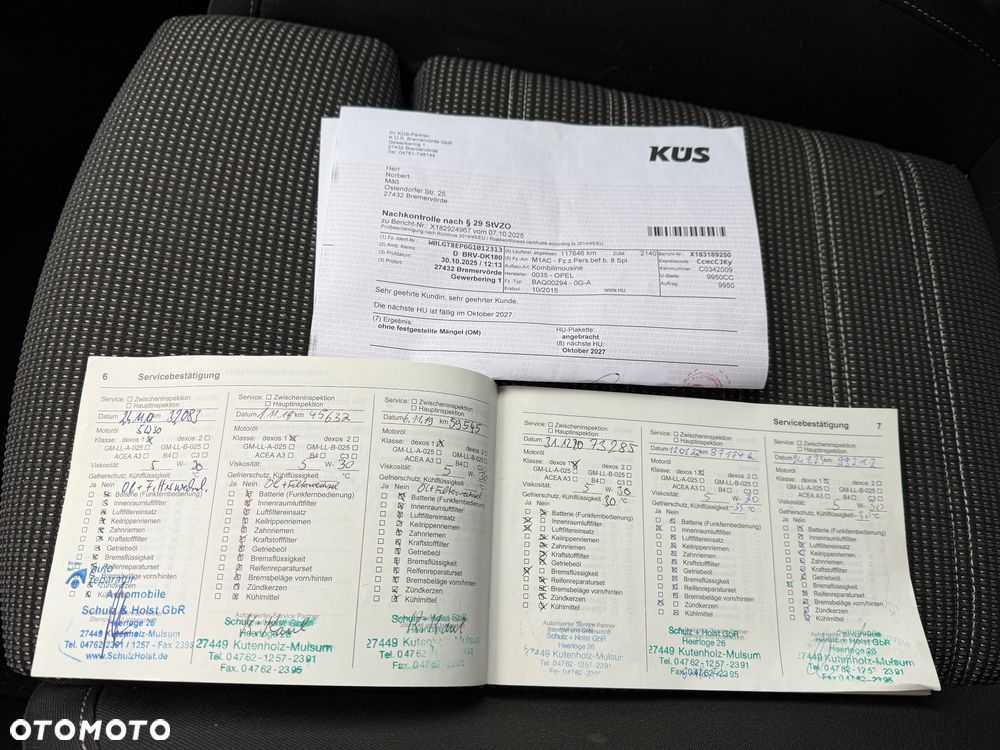 Ihr KÜS-Partner:
K.Ü.S. Bremervörde GbR
Gewerbering 1
27432 Bremervörde
Tel.:04761-748144
KÜS
Herr
Norbert
Maß
Ostendorfer Str. 25
27432 Bremervörde
Nachkontrolle nach § 29 StVZO
zu Bericht-Nr.: X182924967 vom 07.10.2025
Prüfbescheinigung nach Richtlinie 2014/45/EU / Roadworthiness certificate according to 2014/45/EU
(1) Fz.-Ident-Nr.: W0LGT8EP6G1012313
(2) Amtl. Kennz.: D BRV-DK180
(3) Prüfdatum: 30.10.2025 / 12:13
(3) Prüfort: 27432 Bremervörde
Gewerbering 1
(4) Laufleist. abgelesen: 117646 km
(5) Fz.-Art: M1AC - Fz.z.Pers.bef.b. 8 Spl.
Aufbau-Art: Kombilimousine
Hersteller: 0035 - OPEL
Fz.-Typ: BAQ00294 - 0G-A
Erstzul.: 10/2015
zGM: 2140
letzte HU:
Bericht-Nr.: X183189250
Expresscode: CcmcCJKy
Kennnummer: C0342009
U-Stelle: 9950CC
Auftrag: 9950
Sehr geehrte Kundin, sehr geehrter Kunde,
Die nächste HU ist fällig im Oktober 2027.
(7) Ergebnis:
ohne festgestellte Mängel (OM)
HU-Plakette:
angebracht
(8) nächste HU:
Oktober 2027
6 Servicebestätigung
Service: Zwischeninspektion
Hauptinspektion
Datum km 37083
Motoröl 5W30
Klasse: dexos 1 dexos 2
GM-LL-A-025 GM-LL-B-025
ACEA A3 B4 C3
Viskosität: 5 W- 30
Gefrierschutz, Kühlflüssigkeit °C
Ja Nein
Batterie (Funkfernbedienung)
Innenraumluftfilter
Luftfiltereinsatz
Keilrippenriemen
Zahnriemen
Kraftstofffilter
Getriebeöl
Bremsflüssigkeit
Reifenreparaturset
Bremsbeläge vorn/hinten
Zündkerzen
Kühlmittel
auto
reparatur
Automobile
Schulz & Holst GbR
Heerloge 26
27449 Kutenholz-Mulsum
Tel. 04762/1257 - Fax 2395
www.SchulzHolst.de
Service: Zwischeninspektion
Hauptinspektion
Datum 1.11.18 km 45632
Motoröl
Klasse: dexos 1 dexos 2
GM-LL-A-025 GM-LL-B-025
ACEA A3 B4 C3
Viskosität: 5 W- 30
Gefrierschutz, Kühlflüssigkeit °C
Ja Nein Öl + Filterwechsel
Batterie (Funkfernbedienung)
Innenraumluftfilter
Luftfiltereinsatz
Keilrippenriemen
Zahnriemen
Kraftstofffilter
Getriebeöl
Bremsflüssigkeit
Reifenreparaturset
Bremsbeläge vorn/hinten
Zündkerzen
Kühlmittel
Autorisierter Service Partner
Heerloge 26
27449 Kutenholz-Mulsum
Tel. 04762-1257-2391
Fax. 04762-2395
Service: Zwischeninspektion
Hauptinspektion
Datum 6.11.19 km 59545
Motoröl
Klasse: dexos 1 dexos 2
GM-LL-A-025 GM-LL-B-025
ACEA A3 B4 C3
Viskosität: 5 W- 30
Gefrierschutz, Kühlflüssigkeit °C
Ja Nein Öl + Filterwechsel
Batterie (Funkfernbedienung)
Innenraumluftfilter
Luftfiltereinsatz
Keilrippenriemen
Zahnriemen
Kraftstofffilter
Getriebeöl
Bremsflüssigkeit
Reifenreparaturset
Bremsbeläge vorn/hinten
Zündkerzen
Kühlmittel
Schulz + Holst GbR
27449 Kutenholz-Mulsum
Tel. 04762-1257-2391
Fax. 04762-2395
Servicebestätigung 7
Service: Zwischeninspektion
Hauptinspektion
Datum km 73285
Motoröl
Klasse: dexos 1 dexos 2
GM-LL-A-025 GM-LL-B-025
ACEA A3 B4 C3
Viskosität: 5 W- 30
Gefrierschutz, Kühlflüssigkeit 30 °C
Ja Nein
Batterie (Funkfernbedienung)
Innenraumluftfilter
Luftfiltereinsatz
Keilrippenriemen
Zahnriemen
Kraftstofffilter
Getriebeöl
Bremsflüssigkeit
Reifenreparaturset
Bremsbeläge vorn/hinten
Zündkerzen
Kühlmittel
Autorisierter Service Partner
Heerloge 26
27449 Kutenholz-Mulsum
Tel. 04762-1257-2391
Service: Zwischeninspektion
Hauptinspektion
Datum km 87174
Motoröl
Klasse: dexos 1 dexos 2
GM-LL-A-025 GM-LL-B-025
ACEA A3 B4 C3
Viskosität: 5 W- 30
Gefrierschutz, Kühlflüssigkeit -35 °C
Ja Nein
Batterie (Funkfernbedienung)
Innenraumluftfilter
Luftfiltereinsatz
Keilrippenriemen
Zahnriemen
Kraftstofffilter
Getriebeöl
Bremsflüssigkeit
Reifenreparaturset
Bremsbeläge vorn/hinten
Zündkerzen
Kühlmittel
Schulz + Holst GbR
Heerloge 26
27449 Kutenholz-Mulsum
Tel. 04762-1257-2391
Fax 04762-2395
Service: Zwischeninspektion
Hauptinspektion
Datum km
Motoröl
Klasse: dexos 1 dexos 2
GM-LL-A-025 GM-LL-B-025
ACEA A3 B4 C3
Viskosität: 5 W- 30
Gefrierschutz, Kühlflüssigkeit °C
Ja Nein
Batterie (Funkfernbedienung)
Innenraumluftfilter
Luftfiltereinsatz
Keilrippenriemen
Zahnriemen
Kraftstofffilter
Getriebeöl
Bremsflüssigkeit
Reifenreparaturset
Bremsbeläge vorn/hinten
Zündkerzen
Kühlmittel
Schulz + Holst GbR
Heerloge 26
27449 Kutenholz-Mulsum
Tel. 04762-1257 2391
Fax 04762-2395
OTOMOTO